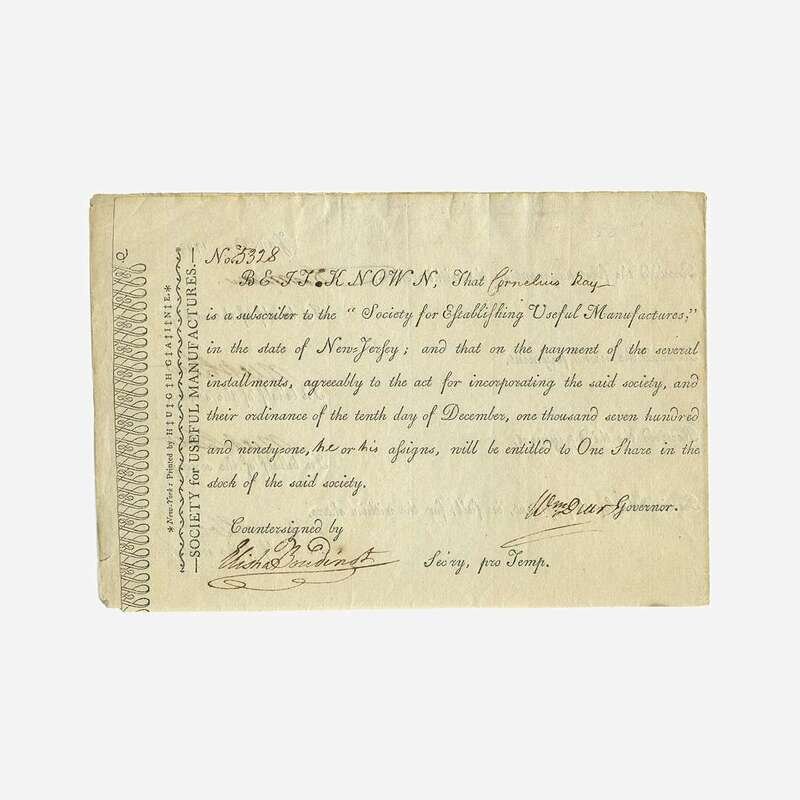 No. 5328
BE IT KNOWN, That Cornelius Ray
is a subscriber to the "Society for Establishing Useful Manufactures;"
in the state of New-Jersey; and that on the payment of the several
installments, agreeably to the act for incorporating the said society, and
their ordinance of the tenth day of December, one thousand seven hundred
and ninety-one, he or his assigns, will be entitled to One Share in the
stock of the said society.
Wm Duer Governor.
Countersigned by
Elisha Boudinot Sec'ry, pro Temp.
*New-York: Printed by H|U|G|H G|A|I|N|E*
—SOCIETY for USEFUL MANUFACTURES.—